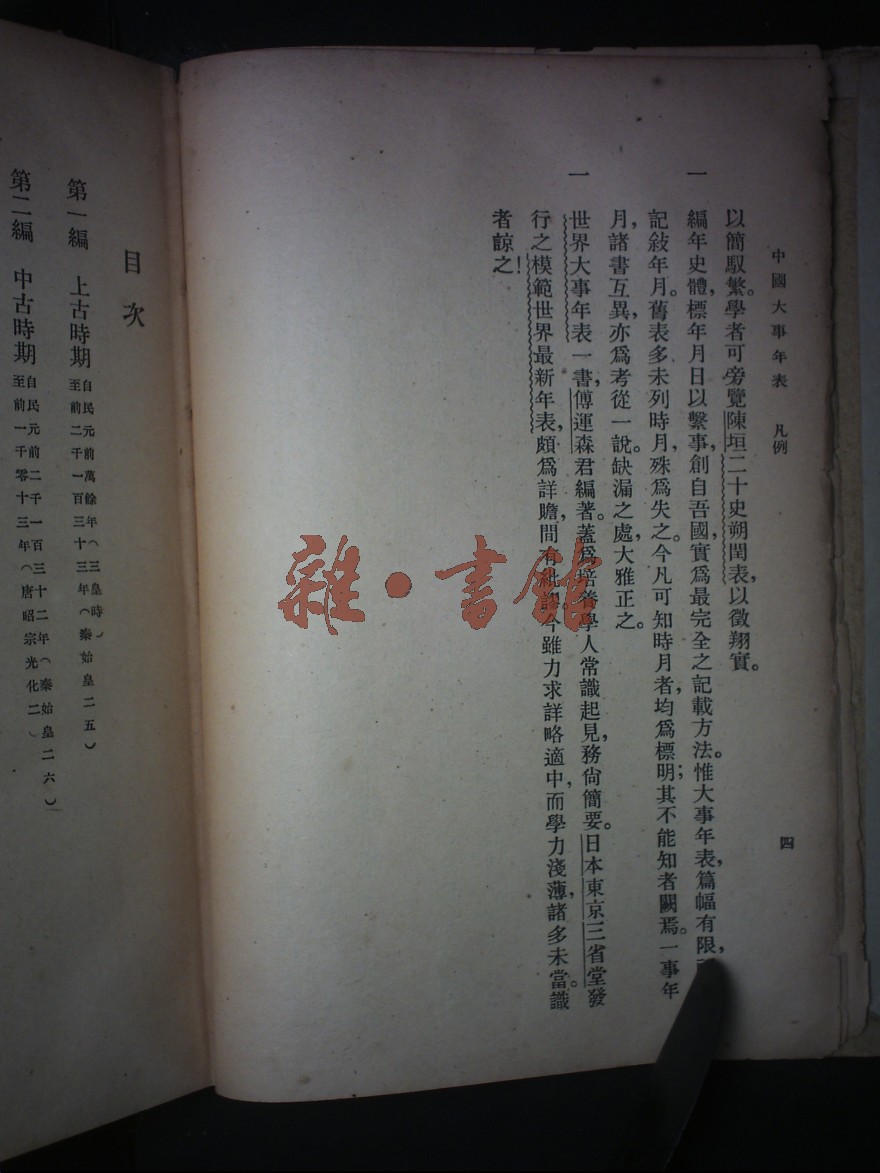 中國大事年表　凡例
四
以簡馭繁。學者可旁覽陳垣二十史朔閏表，以徵翔實。
一　編年史體，標年月日以繫事，創自吾國，實爲最完全之記載方法。惟大事年表，篇幅有限，
記敍年月。舊表多未列時月，殊爲失之。今凡可知時月者，均爲標明；其不能知者闕焉。一事年
月，諸書互異，亦爲考從一說。缺漏之處，大雅正之。
一　世界大事年表一書，傅運森君編著。蓋爲培養學人常識起見，務尙簡要。日本東京三省堂發
行之模範世界最新年表，頗爲詳贍，間有紕謬。今雖力求詳略適中，而學力淺薄，諸多未當。識
者諒之！
目次
第一編　上古時期
自民元前萬餘年（三皇時）
至前二千一百三十三年（秦始皇二五）
第二編　中古時期
自民元前二千一百三十二年（秦始皇二六）
至前一千零十三年（唐昭宗光化二）
雜·書館